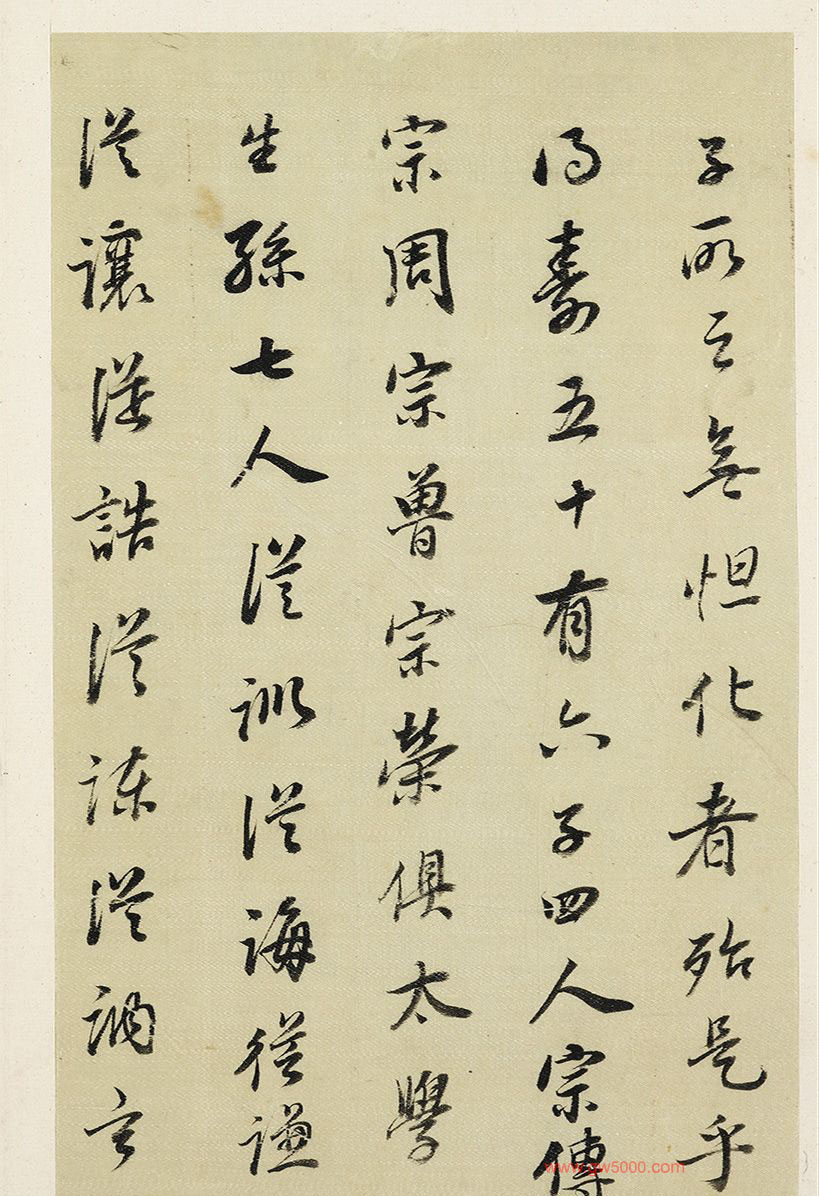 子所云無怛化者殆是乎
得壽五十有六子四人宗傳
宗周宗魯宗榮俱太學
生孫七人從訓從誨從謙
從讓從誥從諫從
www.yw5000.com